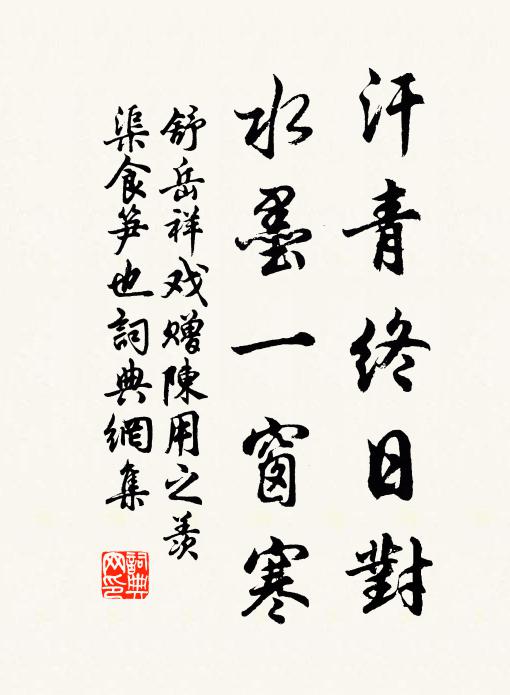 汗青終日對
水墨一窗寒
舒岳祥戏赠陳用之羨
渠食笋也詞典網集
詞典網印